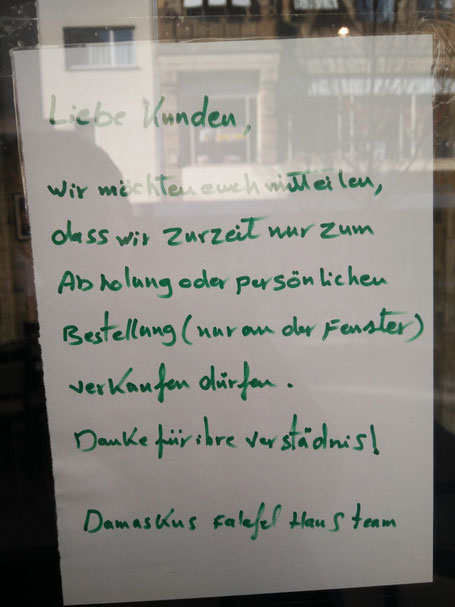 Liebe Kunden,
wir möchten euch mitteilen,
dass wir zurzeit nur zum
Abholung oder persönlichen
Bestellung (nur an der Fenster)
verkaufen dürfen.
Danke für ihre verstädnis!
Damaskus Falafel Haus team